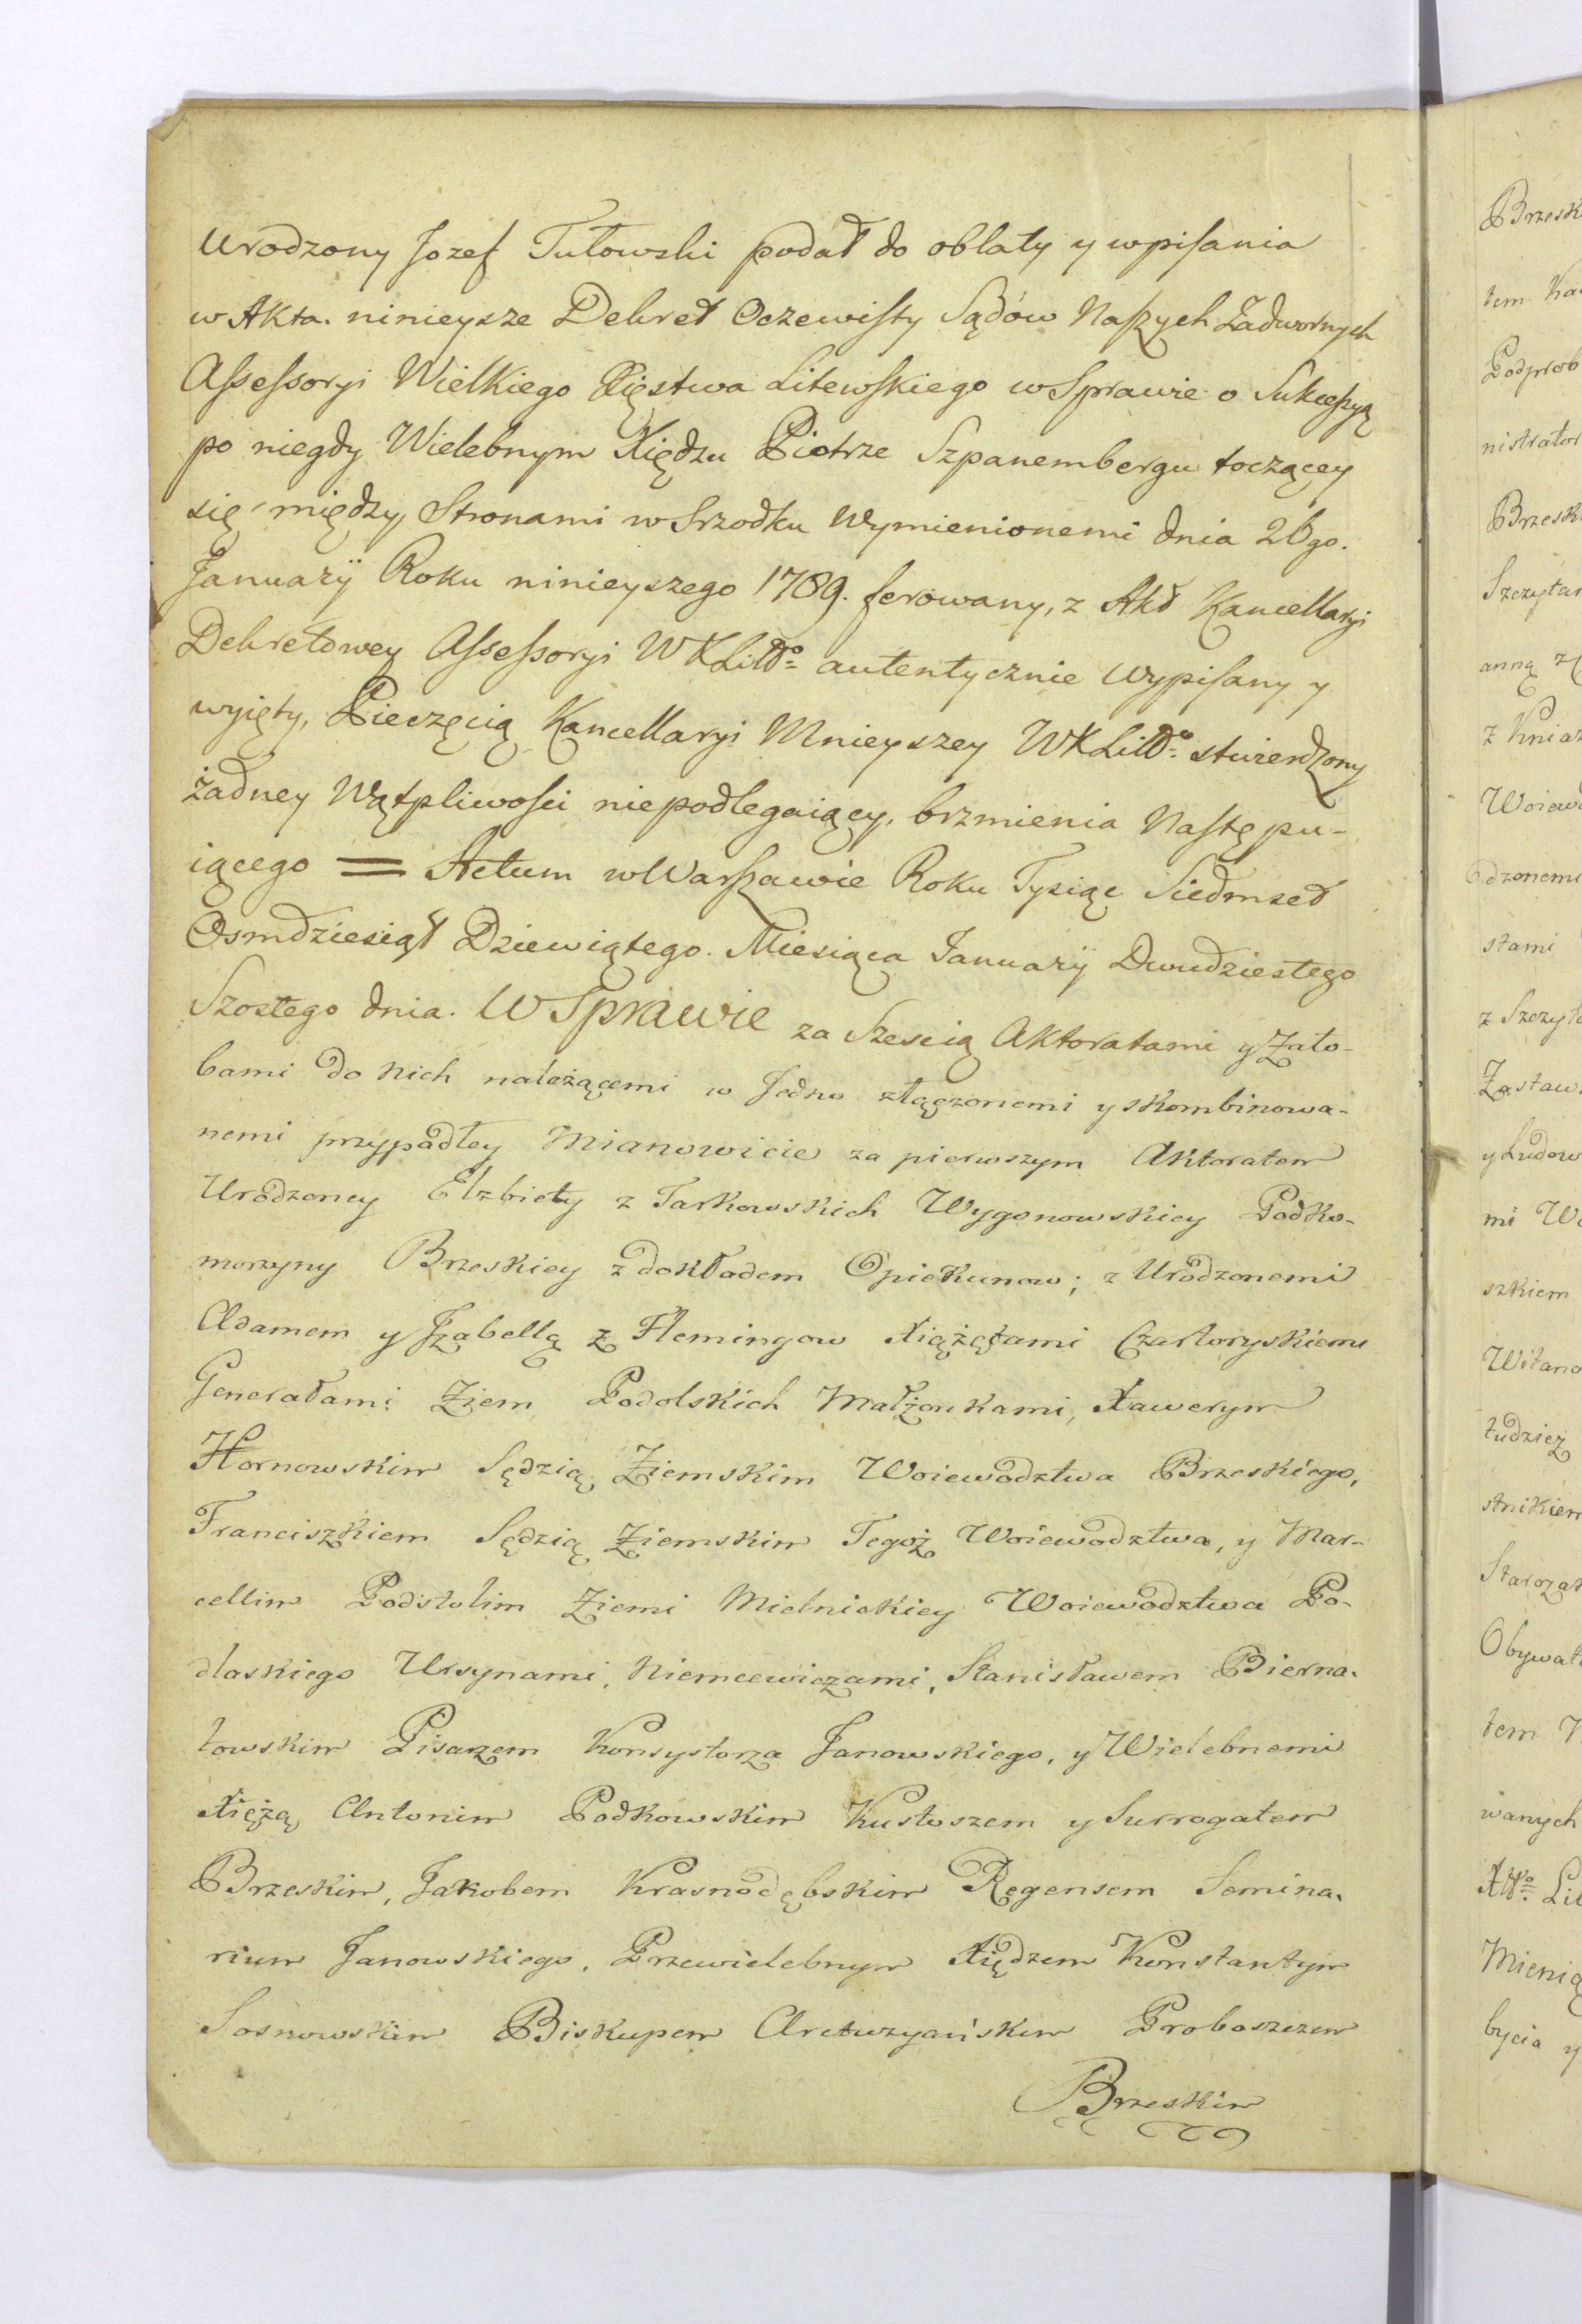 Urodzony Jozef Tułowski podał do oblaty y wpisania
w Akta. ninieysze Dekret Oczewisty Sądów Naszych Zadwornych
Assessoryi Wielkiego Xięstwa Litewskiego w Sprawie o Sukcessyą
po niegdy Wielebnym Xiędzu Piotrze Szpanembergu toczącey
się między Stronami w Srzodku Wymienionemi dnia 26go.
Januarÿ Roku ninieyszego 1789. ferowany, z Akt Kancellaryi
Dekretowey Assessoryi WXLittº autentycznie Wypisany y
wyięty, Pieczęcią Kancellaryi Mnieyszey WXLittº stwierdzony
żadney Wątpliwości niepodlegaiący, brzmienia Nastę pu-
iącego = Actum w Warszawie Roku Tysiąc Siedmset
Osmdziesiąt Dziewiątego. Miesiąca Januarÿ Dwudziestego
Szostego dnia. W Sprawie za Sześcią Aktoratami y Zało-
bami do Nich należącemi w Jedno złączonemi y skombinowa-
nemi przypadłey Mianowicie za pierwszym Aktoratem
Urodzoney Elzbiety z Tarkowskich Wygonowskiey Podko-
morzyny Brzeskiey z dokładem Opiekunow; z Urodzonemi
Adamem y Jzabellą z Flemingow Xiążętami Czartoryskiemi
Generałami Ziem Podolskich Małżonkami, Xawerym
Hornowskim Sędzią Ziemskim Woiewodztwa Brzeskiego,
Franciszkiem Sędzią Ziemskim Tegoż Woiewodztwa, y Mar-
cellim Podstolim Ziemi Mielnickiey Woiewodztwa Po-
dlaskiego Ursynami, Niemcewiczami, Stanisławem Bierna-
towskim Pisarzem Konsystorza Janowskiego, y Wielebnemi
Xiężą Antonim Podkowskim Kustoszem y Surrogatem
Brzeskim, Jakobem Krasnodębskim Regensem Semina-
rium Janowskiego, Przewielebnym Xiędzem Konstantym
Sosnowskim Biskupem Proboszczem
Brzeskim